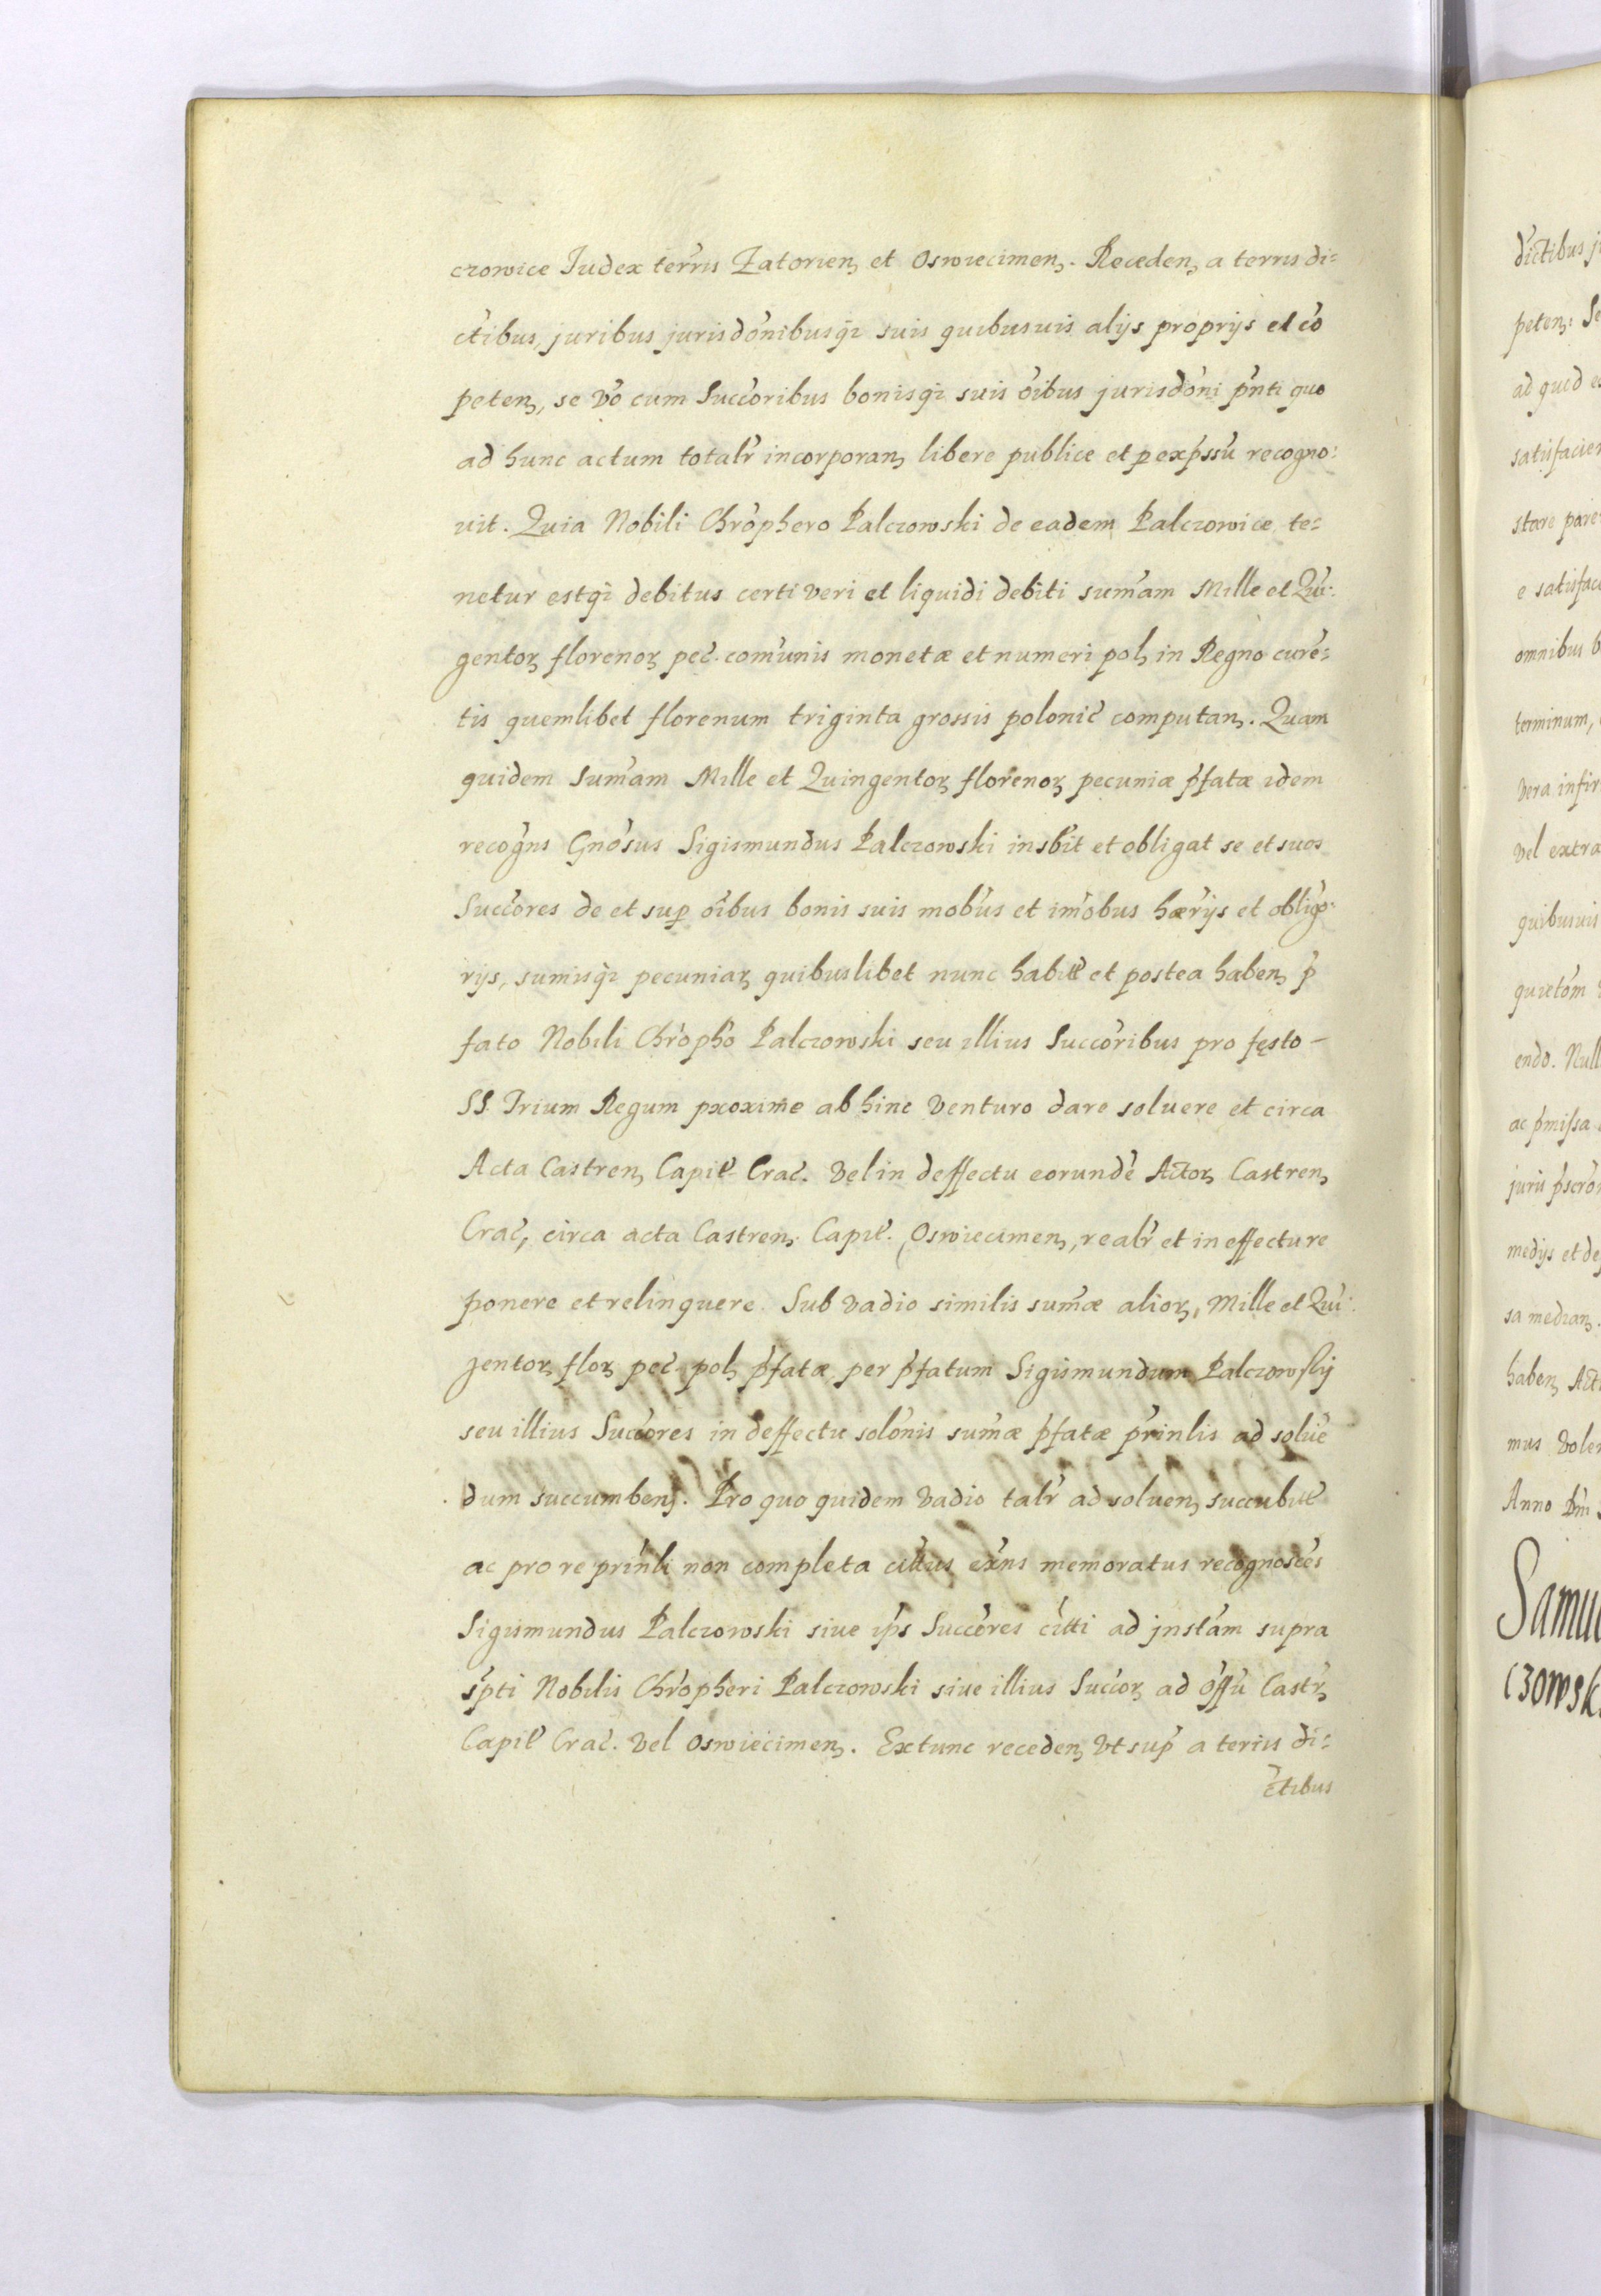 czowice Iudex terris Zatorien, et Oswiecimen,. Receden, a terris di=
ctibus, juribus jurisdónibusq3 suis quibusuis alijs proprijs et có
peten, se vó cum Succoribus bonisq3 suis óibus jurisdóni pńti quo
ad hunc actum totalr incorporan, libere publice et p expssú recogno:
uit. Quia Nobili Chróphero Palczowski de eadem Palczowice te=
netur estq3 debitus certi veri et liquidi debiti sum̃am Mille et Qui:
gentoꝝ florenoꝝ pec̃. com̃unis monetæ et numeri pol, in Regno curẽ=
tis quemlibet florenum triginta grossis polonic̃ computan,. Quam
quidem Sum̃am Mille et Quingentoꝝ florenoꝝ pecuniæ p̃fatæ idem
recogñs Gnósus Sigismundus Palczowski insb̃it et obligat se et suos
Succ̃ores de et sup óibus bonis suis mob̃us et im̃obus hær̃ijs et oblig̃o:
rijs, sumisq3 pecuniaꝝ quibuslibet nunc habitt̃ et postea haben, p̃
fato Nobili Chróph̃o Palczowski seu illius Succ̃oribus pro festo –
SS. Trium Regum proxime ab hinc venturo dare soluere et circa
Acta Castren, Capit̃ Crac̃. vel in deffectu eorundẽ Actoꝝ Castren,
Crac̃, circa acta Castren, Capit̃. Oswiecimen, realr̃ et in effectu re
ponere et relinquere. Sub vadio similis sum̃æ alioꝝ, Mille et Qui:
gentoꝝ floꝝ pec̃. pol, p̃fatæ, per p̃fatum Sigismundum Palczowskij
seu illius Succ̃ores in deffectu solónis sum̃æ p̃fatæ pr̃inlis ad soluẽ
dum succumben,. Pro quo quidem vadio talr̃ ad soluen, succubitt̃
ac pro re prinl̃i non completa citt̃us ex̃ns memoratus recognoscẽs
Sigismundus Palczowski siue ip̃s Succ̃ores citt̃i ad jnstãm supra
sp̃ti Nobilis Chrópheri Palczowski siue illius Succ̃oꝝ ad óffũ Castr̃,
Capit̃ Crac̃. vel Oswiecimen,. Extunc receden, vt sup̃ a terius di=
ctibus
dictibus j
peten,: Se
ad quod e
satisfacie
stare pare
e satisfac
omnibus b
terminum,
vera infir
vel extra
quibusuis
quietóm
endo. Null
ac p̃missa
juris p̃scró
medijs et de
sa median,.
haben, Act
mus vole
Anno Dm̃
Samu
czowsk